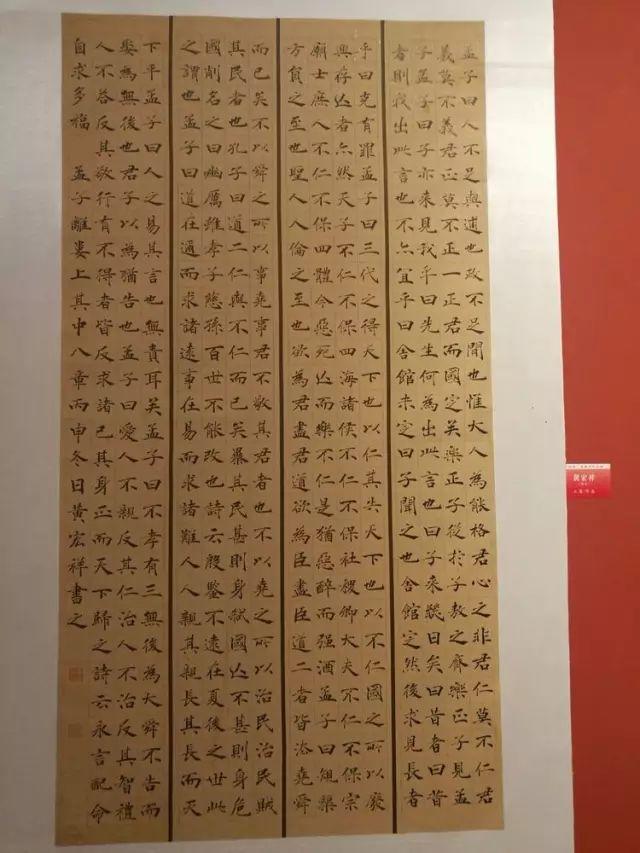 孟子曰人不足與適也政不足間也惟大人為能格君心之非君仁莫不仁君
義莫不義君正莫不正一正君而國定矣樂正子從於子敖之齊樂正子見孟
子孟子曰子亦來見我乎曰先生何為出此言也曰子來幾日矣曰昔者曰昔
者則我出此言也不亦宜乎曰舍館未定曰子聞之也舍館定然後求見長者
乎曰克有罪孟子曰三代之得天下也以仁其失天下也以不仁國之所以廢
興存亡者亦然天子不仁不保四海諸侯不仁不保社稷卿大夫不仁不保宗
廟士庶人不仁不保四體今惡死亡而樂不仁是猶惡醉而强酒孟子曰規榘
方負之至也聖人人倫之至也欲為君盡君道欲為臣盡臣道二者皆法堯舜
而已矣不以舜之所以事堯事君不敬其君者也不以堯之所以治民治民賊
其民者也孔子曰道二仁與不仁而已矣暴其民甚則身弒國亡不甚則身危
國削名之曰幽厲雖孝子慈孫百世不能改也詩云殷鑒不遠在夏後之世此
之謂也孟子曰道在邇而求諸遠事在易而求諸難人人親其親長其長而天
下平孟子曰人之易其言也無責耳矣孟子曰不孝有三無後為大舜不告而
娶為無後也君子以為猶告也孟子曰愛人不親反其仁治人不治反其智禮
人不荅反其敬行有不得者皆反求諸己其身正而天下歸之詩云永言配命
自求多福 孟子離婁上其中八章丙申冬日黄宏祥書之
黄宏祥